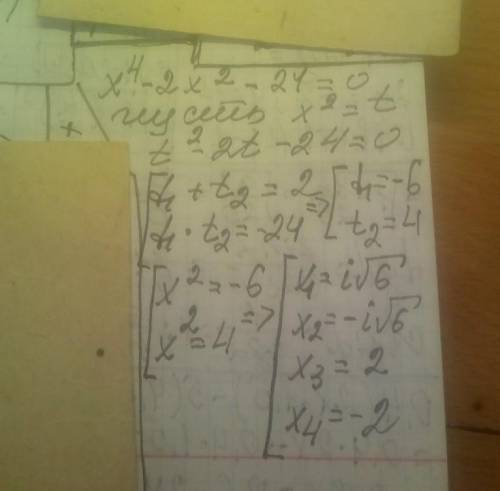 x⁴-2x²-24=0
пусть x²=t
t²-2t-24=0
t₁+t₂=2
t₁·t₂=-24 => t₁=-6
t₂=4
x²=-6
x²=4 => x₁=i√6
x₂=-i√6
x₃=2
x₄=-2